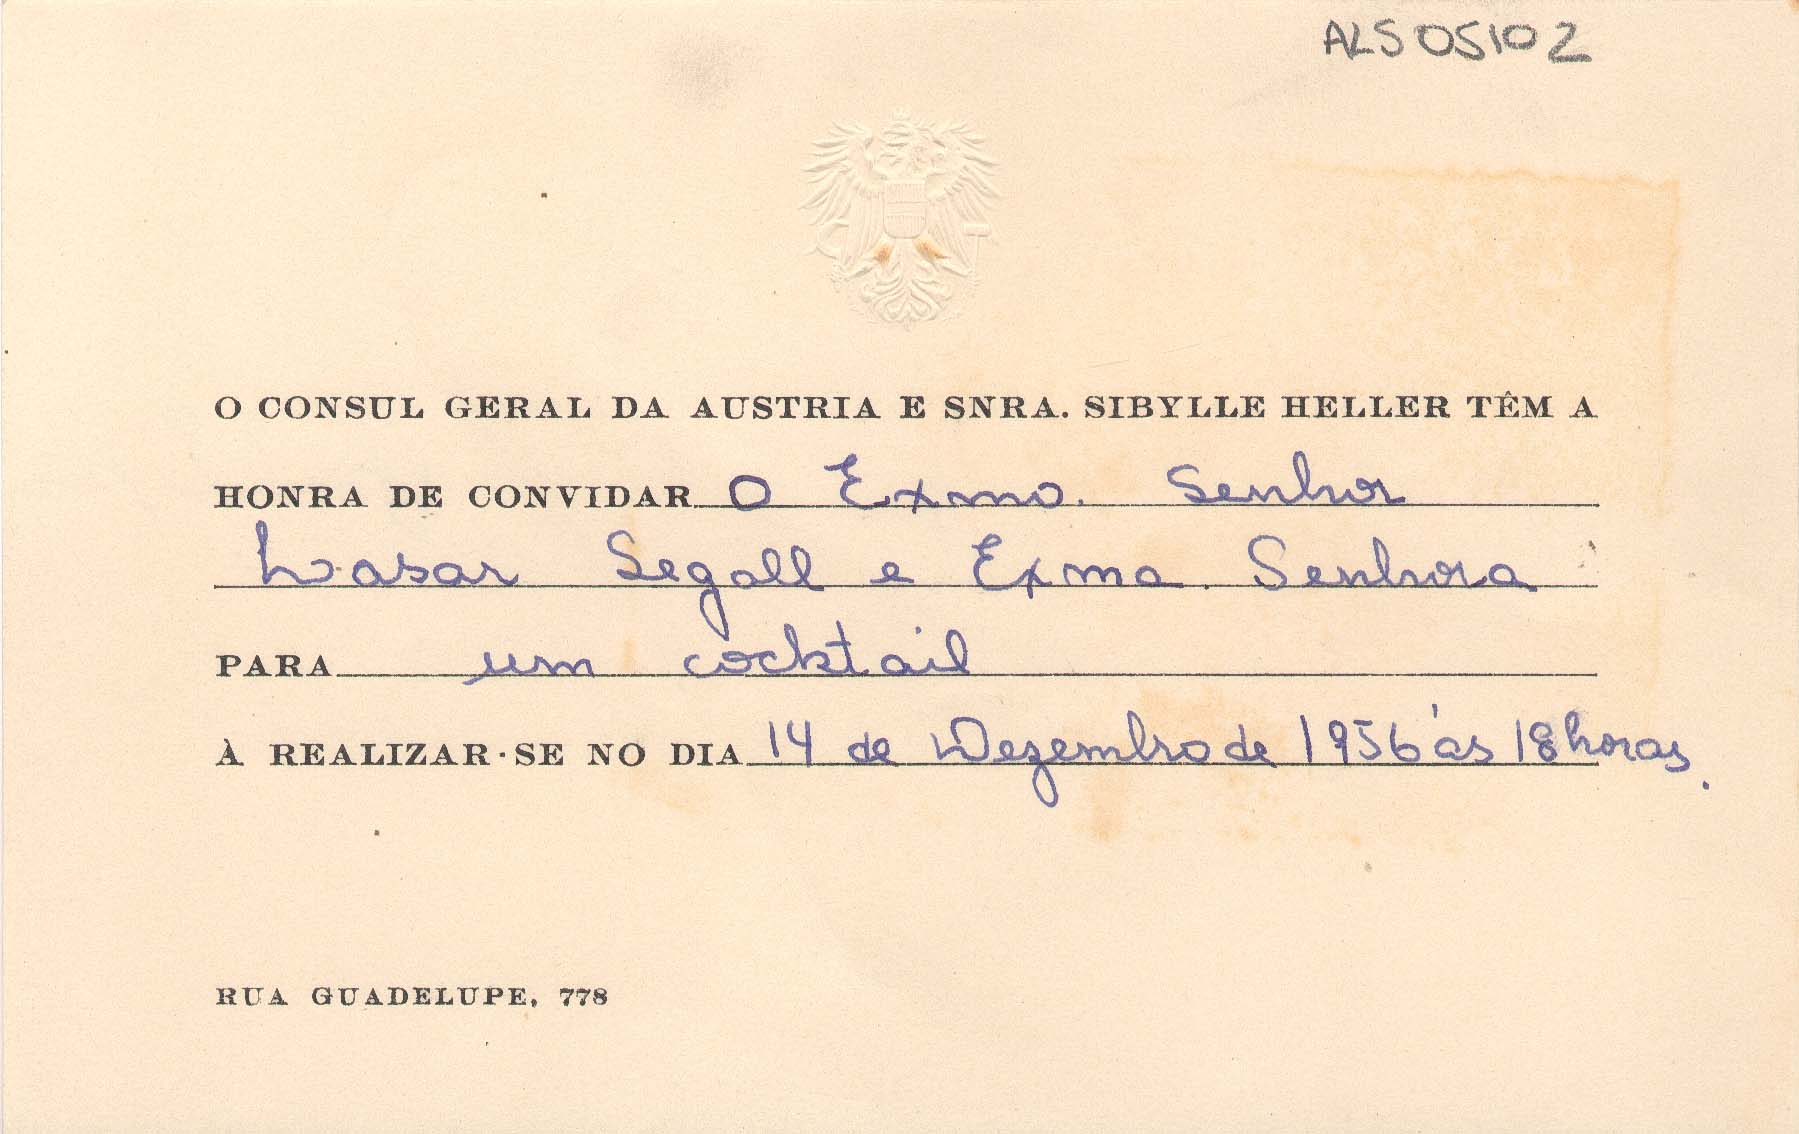 ALS 05102
O CONSUL GERAL DA AUSTRIA E SNRA. SIBYLLE HELLER TÊM A
HONRA DE CONVIDAR O Exmo. Senhor
Lasar Segall e Exma. Senhora
PARA um cocktail
À REALIZAR-SE NO DIA 14 de Dezembro de 1956 às 18 horas.
RUA GUADELUPE, 778